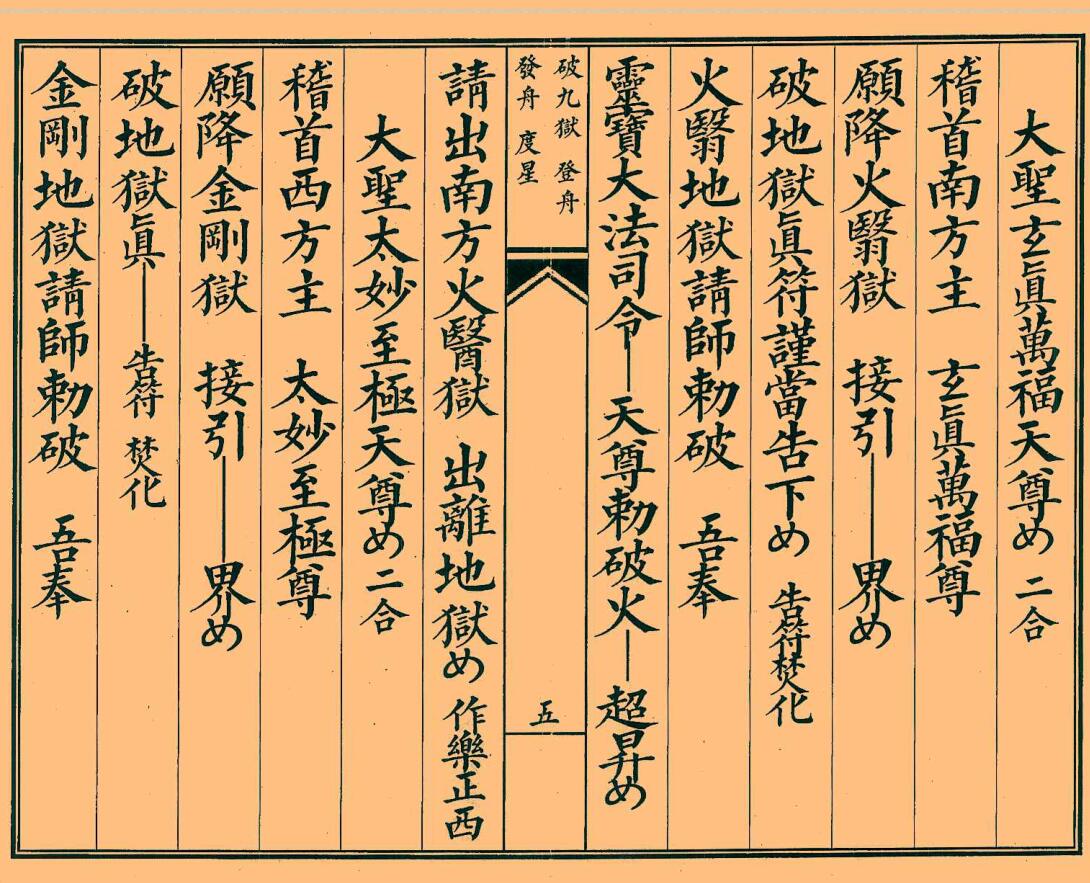 大聖玄眞萬福天尊め 二合
稽首南方主 玄眞萬福尊
願降火翳獄 接引——界め
破地獄眞符謹當告下め 告符焚化
火翳地獄請師勅破 吾奉
靈寶大法司令—天尊勅破火—超昇め
破九獄 登舟
發舟 度星
五
請出南方火醫獄 出離地獄め 作樂正西
大聖太妙至極天尊め 二合
稽首西方主 太妙至極尊
願降金剛獄 接引——界め
破地獄眞—— 告符 焚化
金剛地獄請師勅破 吾奉